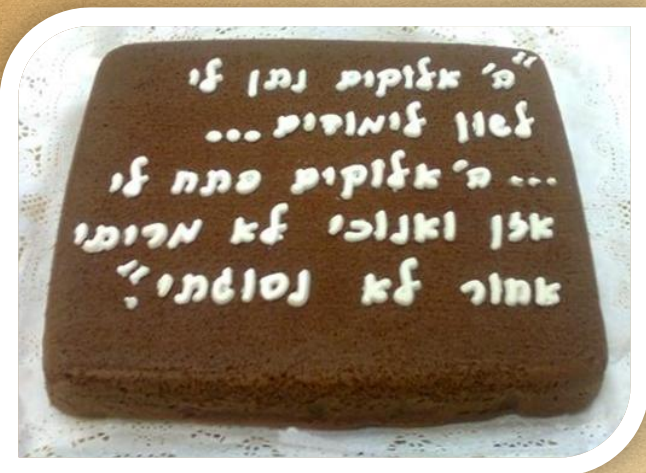 "ה' אלוקים נתן לי
לשון לימודים ...
... ה' אלוקים פתח לי
אזן ואנוכי לא מריתי
אחור לא נסוגתי".